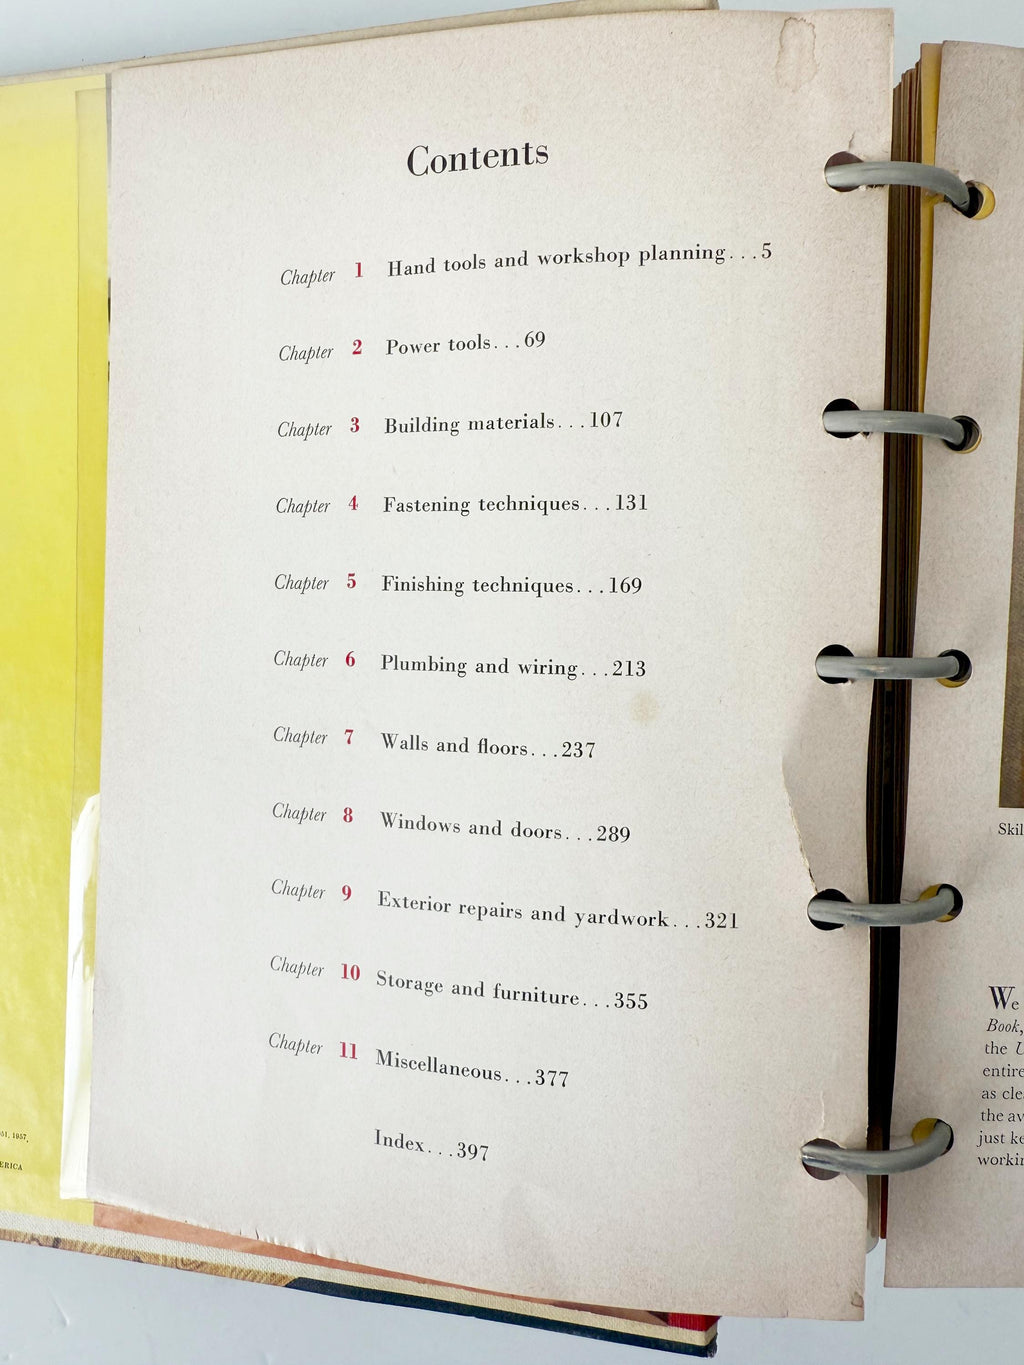 Contents
Chapter 1 Hand tools and workshop planning...5
Chapter 2 Power tools...69
Chapter 3 Building materials...107
Chapter 4 Fastening techniques...131
Chapter 5 Finishing techniques...169
Chapter 6 Plumbing and wiring...213
Chapter 7 Walls and floors...237
Chapter 8 Windows and doors...289
Chapter 9 Exterior repairs and yardwork...321
Chapter 10 Storage and furniture...355
Chapter 11 Miscellaneous...377
Index...397
1957,
Skil
We
Book,
the U
entire
as cle
the av
just ke
workin